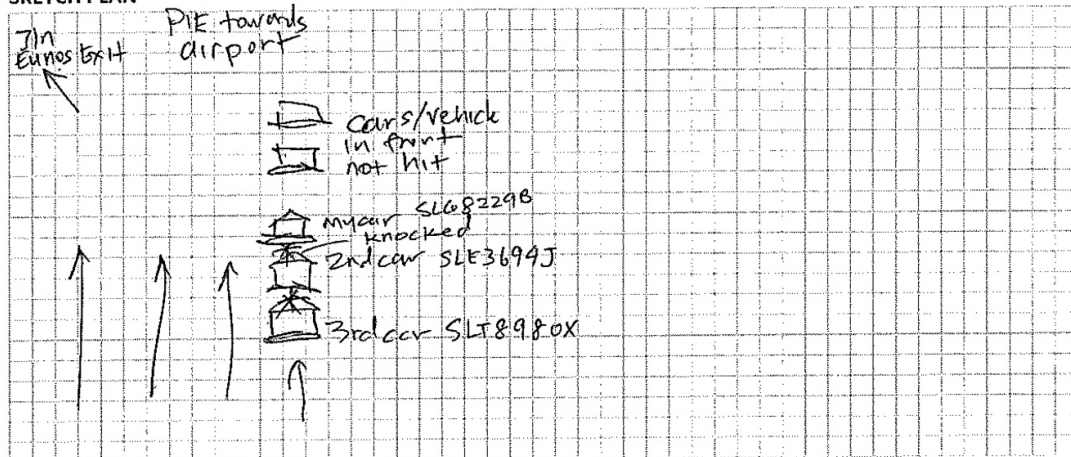 SKETCH PLAN
Jln
Eunos Exit
PIE towards
airport
cars/vehicle
in front
not hit
my car SLG8229B
knocked
2nd car SLE3694J
3rd car SLT8980X